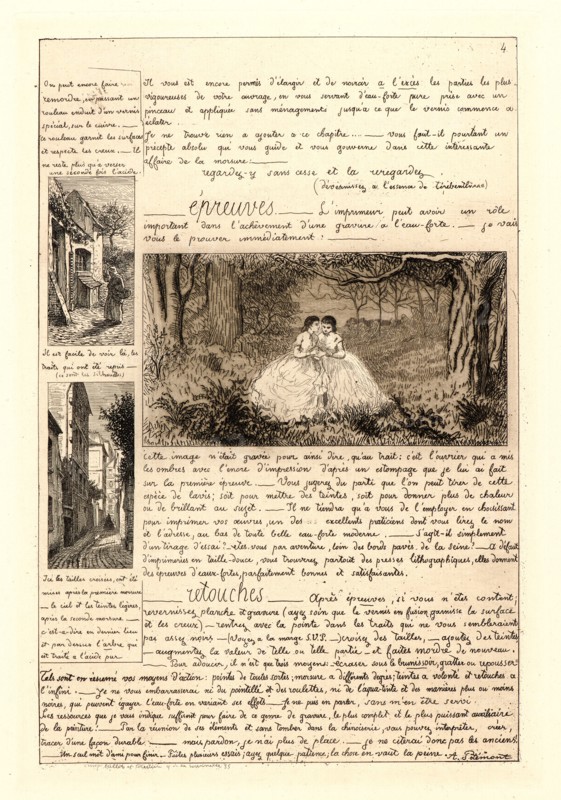 4
On peut encore faire
remordre, en passant un
rouleau enduit d'un vernis
spécial, sur le cuivre. —
Le rouleau garnit les surfaces
et respecte les creux. — Il
ne reste plus qu'a verser
une seconde fois l'acide.
Il est facile de voir là, les
traits qui ont été repris —
(ce sont les silhouettes)
Ici les tailles croisées, ont été
mises après la première morsure
— le ciel et les teintes légères,
après la seconde morsure. —
c'est-a-dire en dernier lieu
et par dessus l'arbre qui
est traité a l'acide pur.
Il vous est encore permis d'élargir et de noircir a l'excès les parties les plus
vigoureuses de votre ouvrage, en vous servant d'eau-forte pure prise avec un
pinceau et appliquée sans ménagements jusqu'a ce que le vernis commence a
éclater.
Je ne trouve rien a ajouter a ce chapitre...— vous faut-il pourtant un
précepte absolu qui vous guide et vous gouverne dans cette intéressante
affaire de la morsure: —
regardez-y sans cesse et la reregardez.
(Dévernissez a l'essence de térébenthine)
épreuves — L'imprimeur peut avoir un rôle
important dans l'achèvement d'une gravure a l'eau-forte. — Je vais
vous le prouver immédiatement: —
Cette image n'était gravée pour ainsi dire, qu'au trait: c'est l'ouvrier qui a mis
les ombres avec l'encre d'impression d'après un estompage que je lui ai fait
sur la première épreuve. — Vous jugerez du parti que l'on peut tirer de cette
espèce de lavis; soit pour mettre des teintes, soit pour donner plus de chaleur
ou de brillant au sujet. — Il ne tiendra qu'a vous de l'employer en choisissant
pour imprimer vos œuvres, un des excellents praticiens dont vous lirez le nom
et l'adresse, au bas de toute belle eau-forte moderne. — S'agit-il simplement
d'un tirage d'essai? — êtes-vous par aventure, loin des bords parés, de la seine? — a défaut
d'imprimeries en taille-douce, vous trouverez partout des presses lithographiques, elles donnent
des épreuves d'eaux-fortes, parfaitement bonnes et satisfaisantes.
retouches — Après épreuves, si vous n'êtes content,
revernissez planche et gravure (ayez soin que le vernis en fusion, garnisse la surface
et les creux) — rentrez avec la pointe dans les traits qui ne vous sembleraient
pas assez noirs — (Voyez a la marge S.V.P.—) croisez des tailles, — ajoutez des teintes
— augmentez la valeur de telle ou telle partie — et faites mordre de nouveau.
— Pour adoucir, il n'est que trois moyens: écraser sous le brunissoir, gratter ou repousser.
Tels sont en résumé vos moyens d'action: pointes de toutes sortes; morsure a différents degrés; teintes a volonté et retouches a
l'infini. — Je ne vous embarrasserai ni du pointillé et des roulettes, ni de l'aqua-tinte et des manières plus ou moins
noires, qui peuvent égayer l'eau-forte en variant ses effets — Je ne puis en parler, sans m'en être servi.
Les ressources que je vous indique suffiront pour faire de ce genre de gravure, le plus complet et le plus puissant auxiliaire
de la peinture! — Par la réunion de ses éléments et sans tomber dans la chinoiserie, vous pouvez interpréter, créer,
tracer d'une façon durable — mais pardon, je n'ai plus de place. — Je ne citerai donc pas les anciens.
— Un seul mot d'ami pour finir. — Faites plusieurs essais; ayez quelque patience; la chose en vaut la peine. A. Potémont